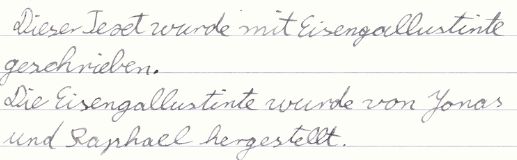 Dieser Text wurde mit Eisengallustinte
geschrieben.
Die Eisengallustinte wurde von Jonas
und Raphael hergestellt.